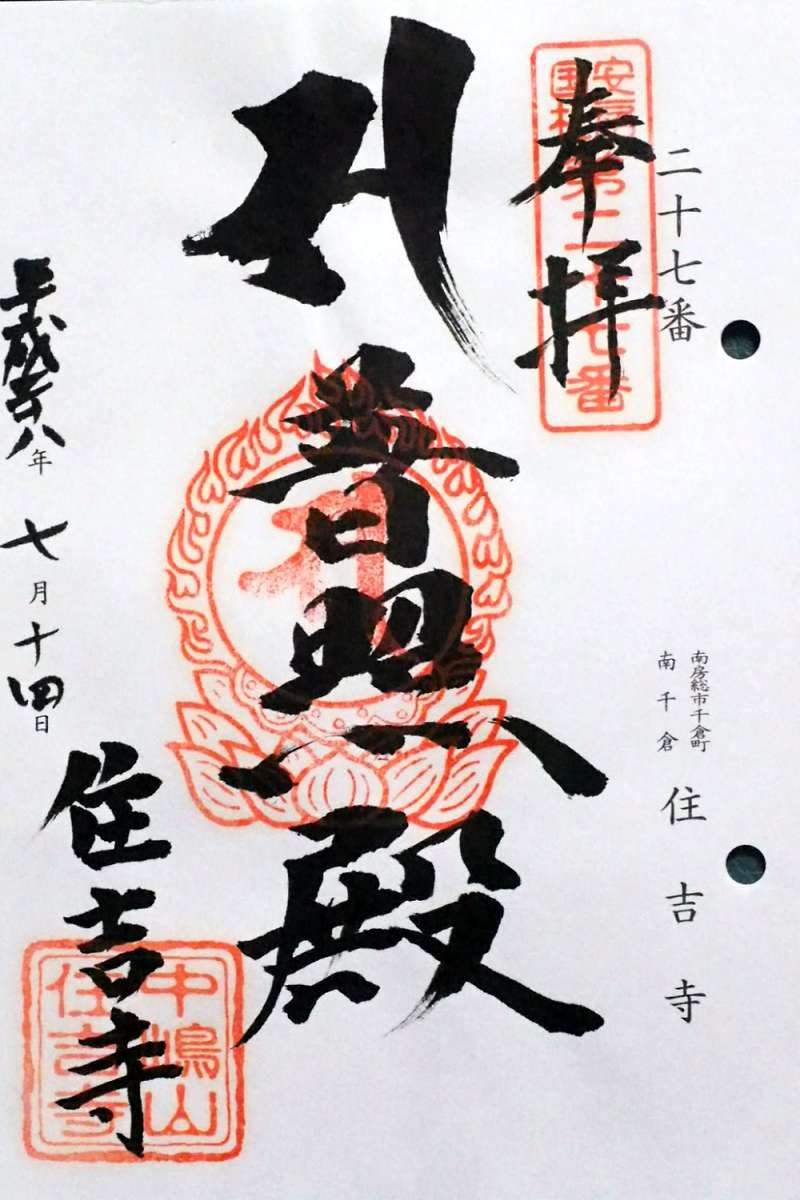 二十七番
南房総市千倉町
南千倉
住吉寺
奉拝
安房
国札
第二十七番
普照殿
平成廿八年七月十四日
住吉寺
中嶋山
住吉寺